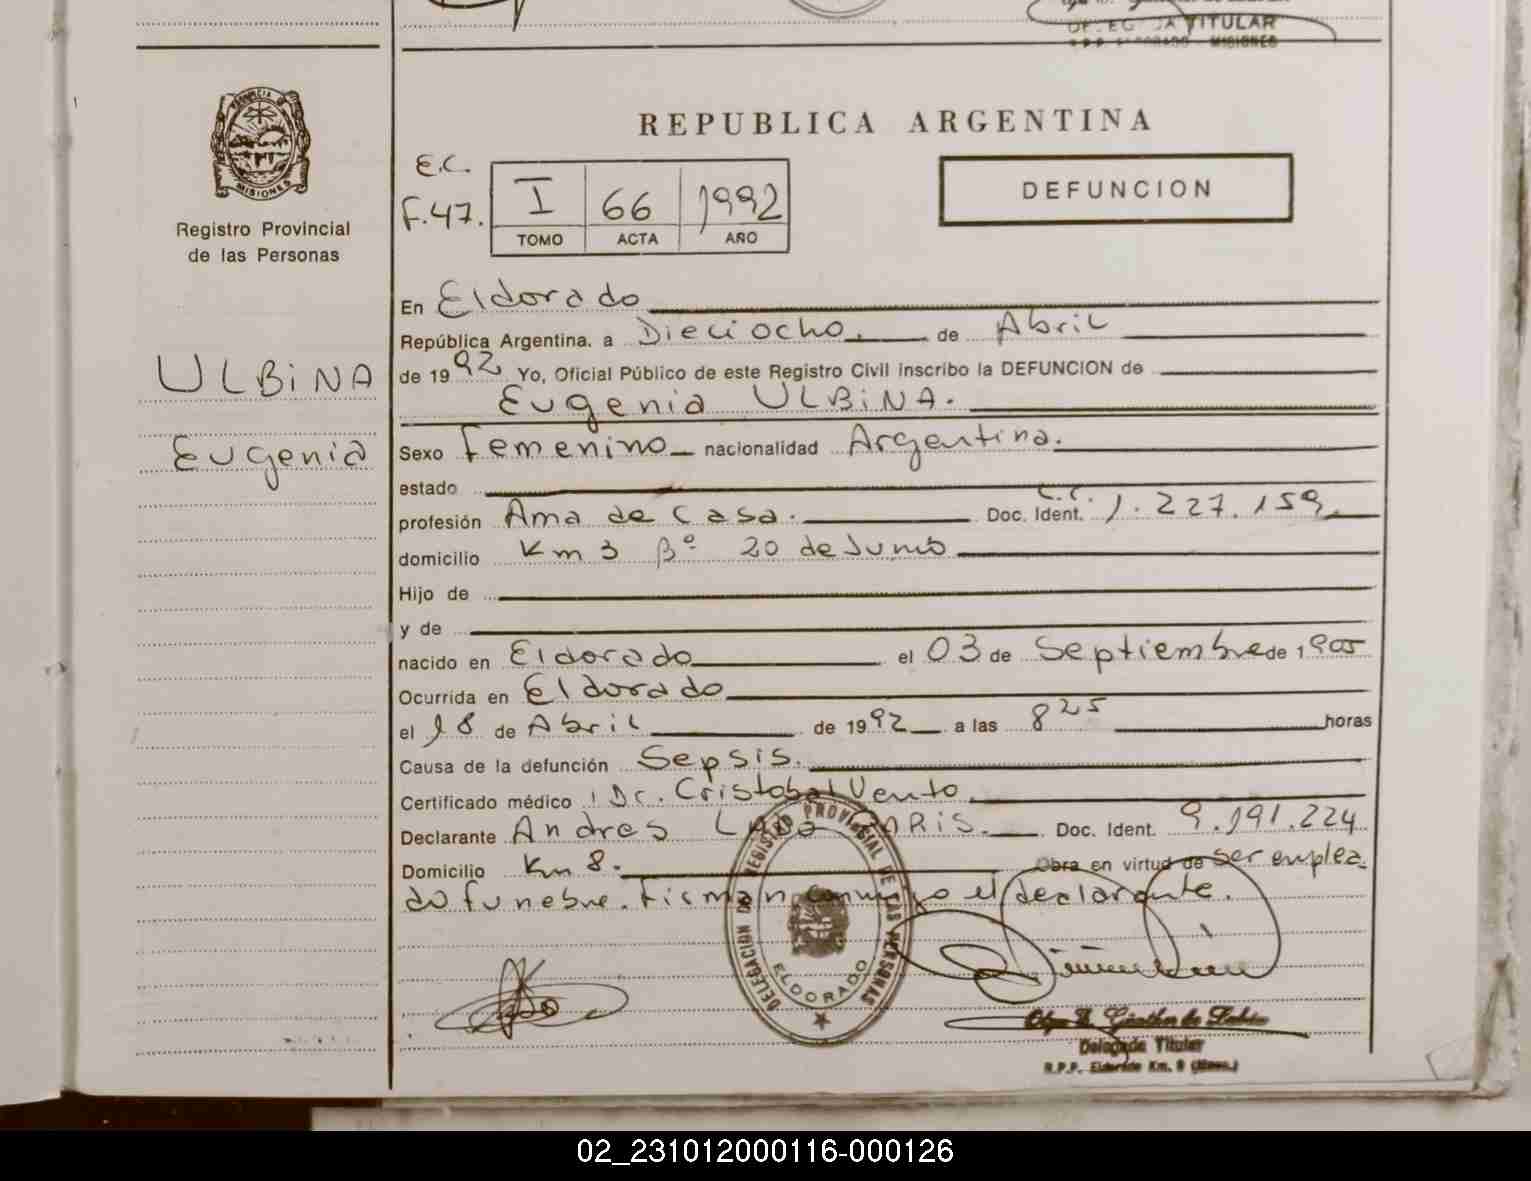 TITULAR
MISIONES
PROVINCIA DE
MISIONES
Registro Provincial
de las Personas
ULBiNA
Eugenia
REPUBLICA ARGENTINA
E.C.
F.47.
I 66 1992
TOMO ACTA AÑO
DEFUNCION
En Eldorado
República Argentina, a Dieciocho. de Abril
de 1992 Yo, Oficial Público de este Registro Civil inscribo la DEFUNCION de
Eugenia ULBiNA.
Sexo Femenino nacionalidad Argentina.
estado
profesión Ama de Casa. Doc. Ident. L.C. 1.227.159
domicilio Km 3 Bº 20 de Junio
Hijo de
y de
nacido en Eldorado el 03 de Septiembre de 1905
Ocurrida en Eldorado
el 18 de Abril de 1992 a las 8 25 horas
Causa de la defunción Sepsis.
Certificado médico Dr. Cristobal Vento
Declarante Andres Doc. Ident. 9.191.224
Domicilio Km 8. Obra en virtud de ser emplea
do funebre. Firman conmigo el declarante.
DELEGACION DE REGISTRO PROVINCIAL DE LAS PERSONAS
ELDORADO
Olga Günther de
Delegada Titular
R.P.P. Eldorado Km. 9 (Mnes.)
02_231012000116-000126